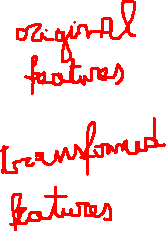 original
features
transformed
features